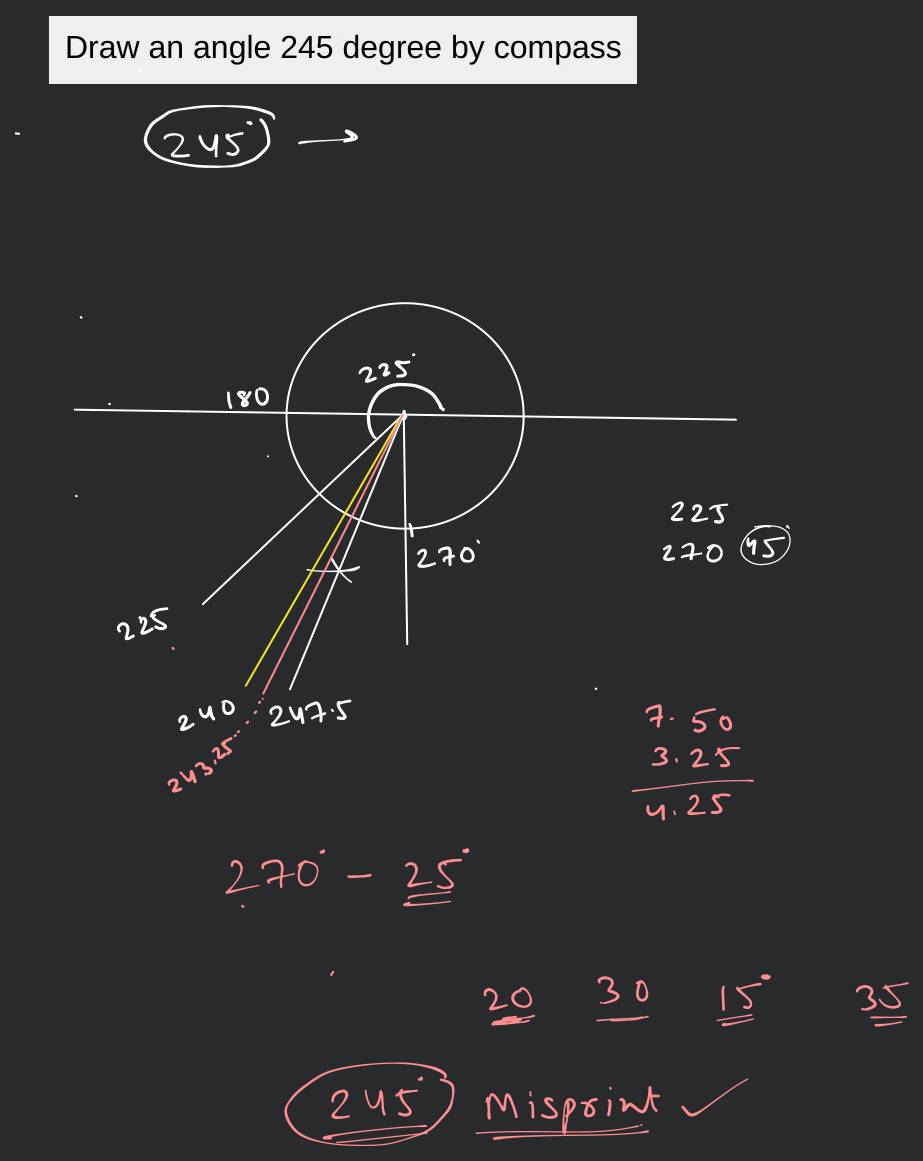 Draw an angle 245 degree by compass
245° →
225°
180
225
270 45°
270°
225
240 247.5
243.25
7.50
3.25
4.25
270° - 25°
20 30 15° 35
245° Misprint ✓